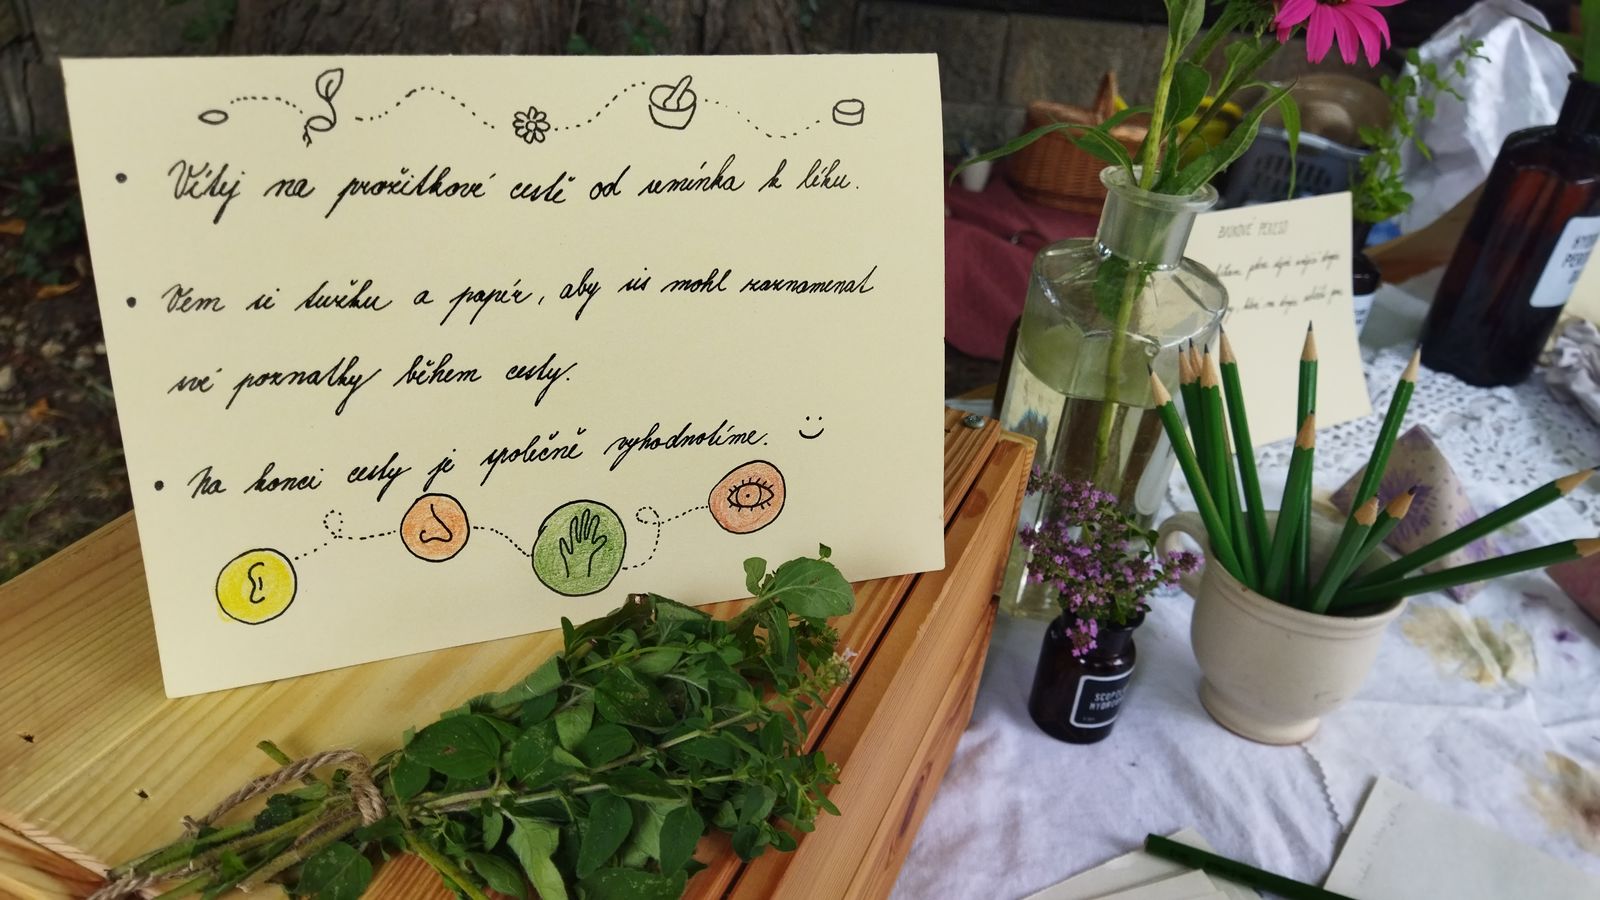 • Vítej na prožitkové cestě od semínka k léku.
• Vem si tužku a papír, aby sis mohl zaznamenat
své poznatky během cesty.
• Na konci cesty je společně vyhodnotíme. :)
SCOPOLI
HYDROG
HYDR
PERO